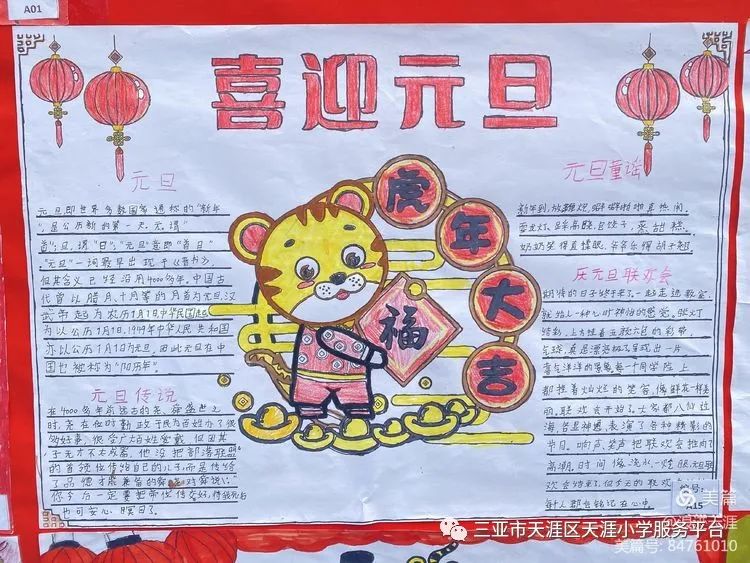 A01
喜迎元旦
元旦
元旦即世界多数国家通称的"新年"
是公历新的第一天。元,谓
首";旦,谓"日";"元旦"意即"首日"
"元旦"一词最早出现于《晋书》,
但其含义已经沿用4000多年。中国古
代曾以腊月、十月等的月首为元旦,汉
武帝起为农历1月1日,中华民国起
为以公历1月1日,1949年中华人民共和国
亦以公历1月1日为元旦,因此元旦在中
国也被称为"阳历年"。
元旦传说
在4000多年前远古的尧、舜盛世之
时,尧在位时勤政于民为百姓办了很
多好事,很受广大百姓爱戴,但因其
子无才不太成器,他没把部落联盟
的首领位传给自己的儿子,而是传给了
品德才
你今后一定要把帝位传交好,待我死后
也可安心瞑目了。
虎年大吉
福
元旦童谣
新年到,放鞭炮,噼噼啪啪真热闹。
耍龙灯,踩高跷,包饺子,蒸甜糕,
奶奶笑得直揉眼,爷爷乐得胡子翘
庆元旦联欢会
期待的日子终于来了,一起走进教室,
就给人一种
都挂着灿烂的笑容,像鲜花一样美
丽。联欢会开始了,大家都八仙过
海,各显神通,表演了各种精彩的
节目。响声、笑声把联欢会推向了
高潮。时间像流水,一
欢会结束了,但今天的联欢
每个人都会铭记在心中。
编号:
A15
美篇
三亚市天涯区天涯小学服务平台
美篇号: 84761010